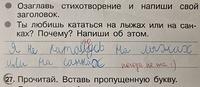 Озаглавь стихотворение и напиши свой
заголовок.
Ты любишь кататься на лыжах или на сан-
ках? Почему? Напиши об этом.
Я не катаюсь на лыжах
или на санках погода не та :)
27. Прочитай. Вставь пропущенную букву.